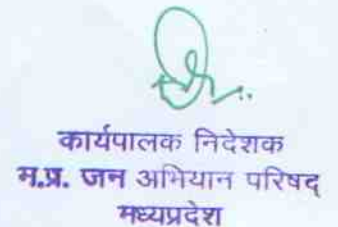 कार्यपालक निदेशक
म.प्र. जन अभियान परिषद्
मध्यप्रदेश